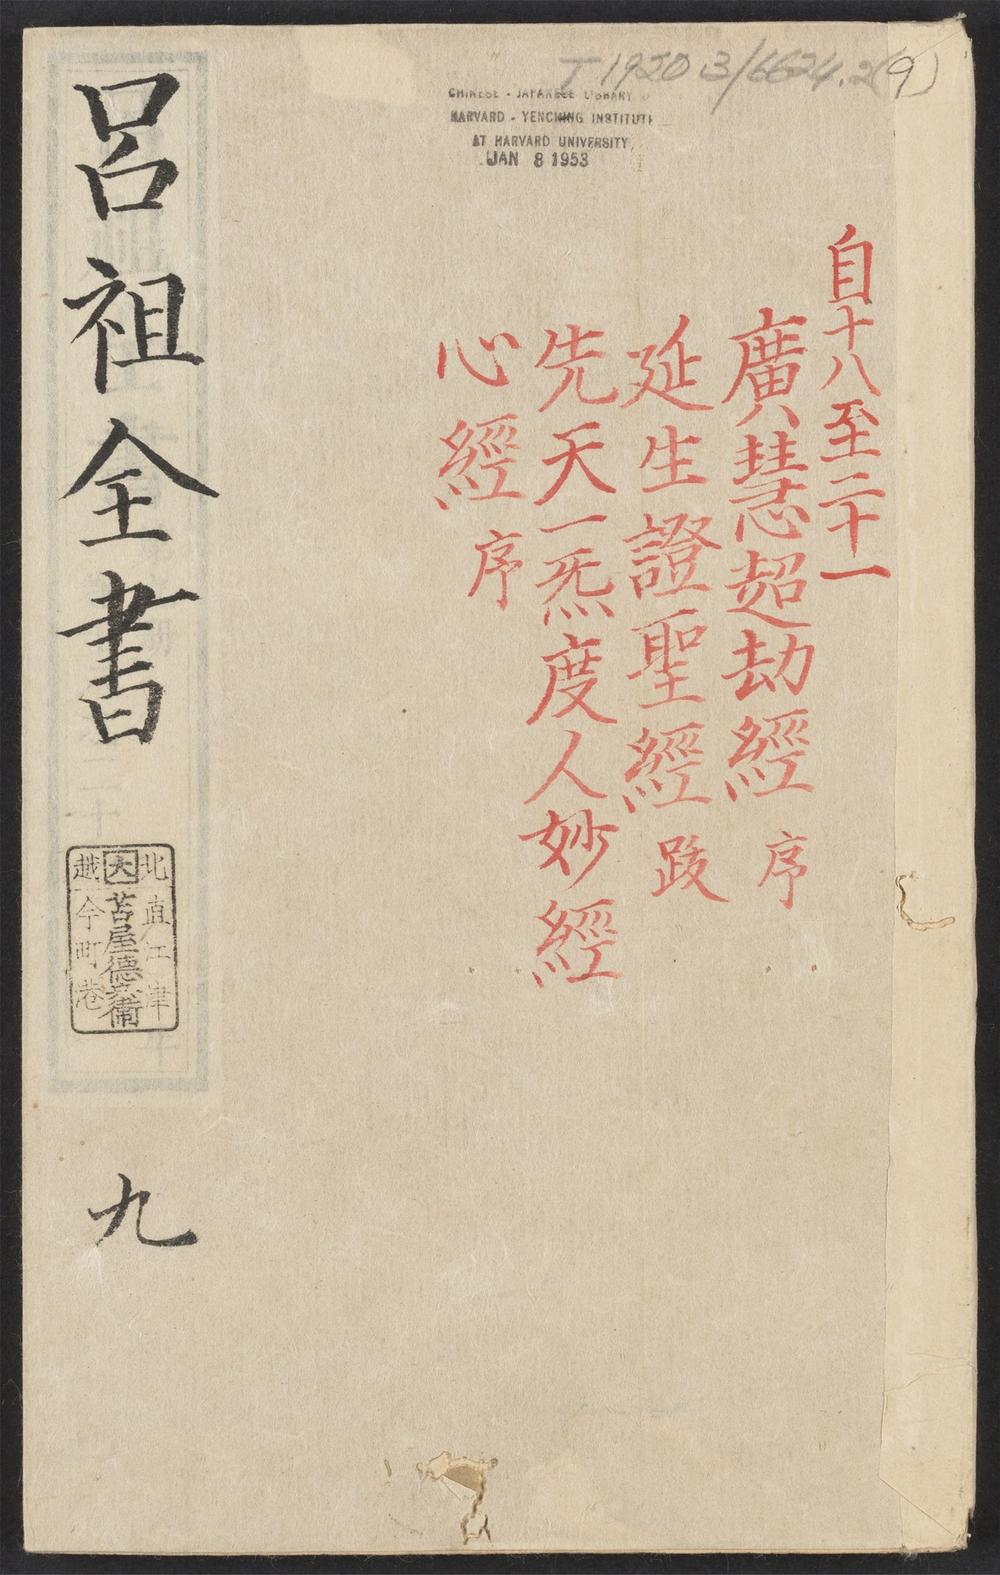 T 1920 3/6624.2(9)
CHINESE - JAPANESE LIBRARY
HARVARD - YENCHING INSTITUTE
AT HARVARD UNIVERSITY
JAN 8 1953
自十八至二十一
廣慧超劫經 序
延生證聖經 跋
先天一炁度人妙經
心經 序
呂祖全書
北直江津
大 苫屋德兵衛
越今町港
九